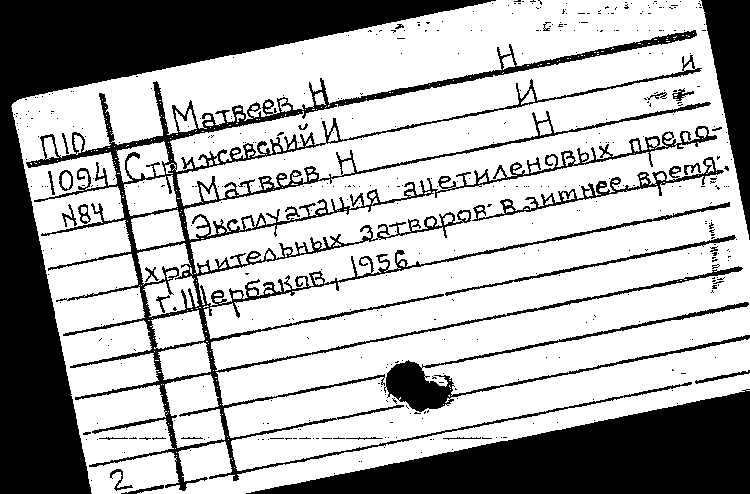 Матвеев, Н Н и
П10 Стрижевский И И
1094 Матвеев, Н Н
N84 Эксплуатация ацетиленовых предо-
хранительных затворов в зимнее время.
г. Щербаков, 1956.
2